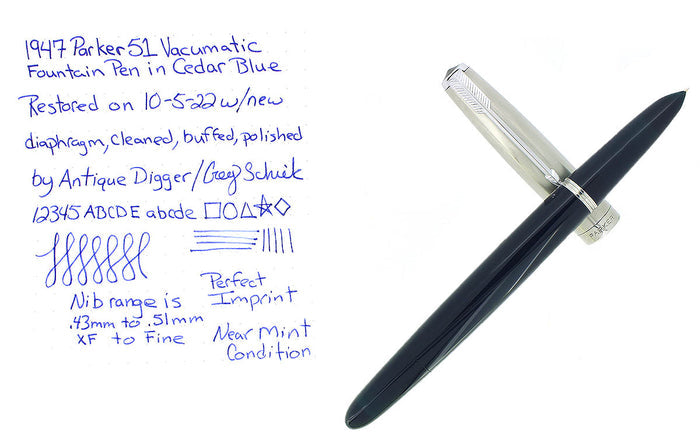 1947 Parker 51 Vacumatic
Fountain Pen in Cedar Blue
Restored on 10-5-22 w/new
diaphragm, cleaned, buffed, polished
by Antique Digger/Greg Schiek
12345 ABCDE abcde
Nib range is
.43mm to .51mm
XF to Fine
Perfect
Imprint
Near Mint
Condition
PARKER